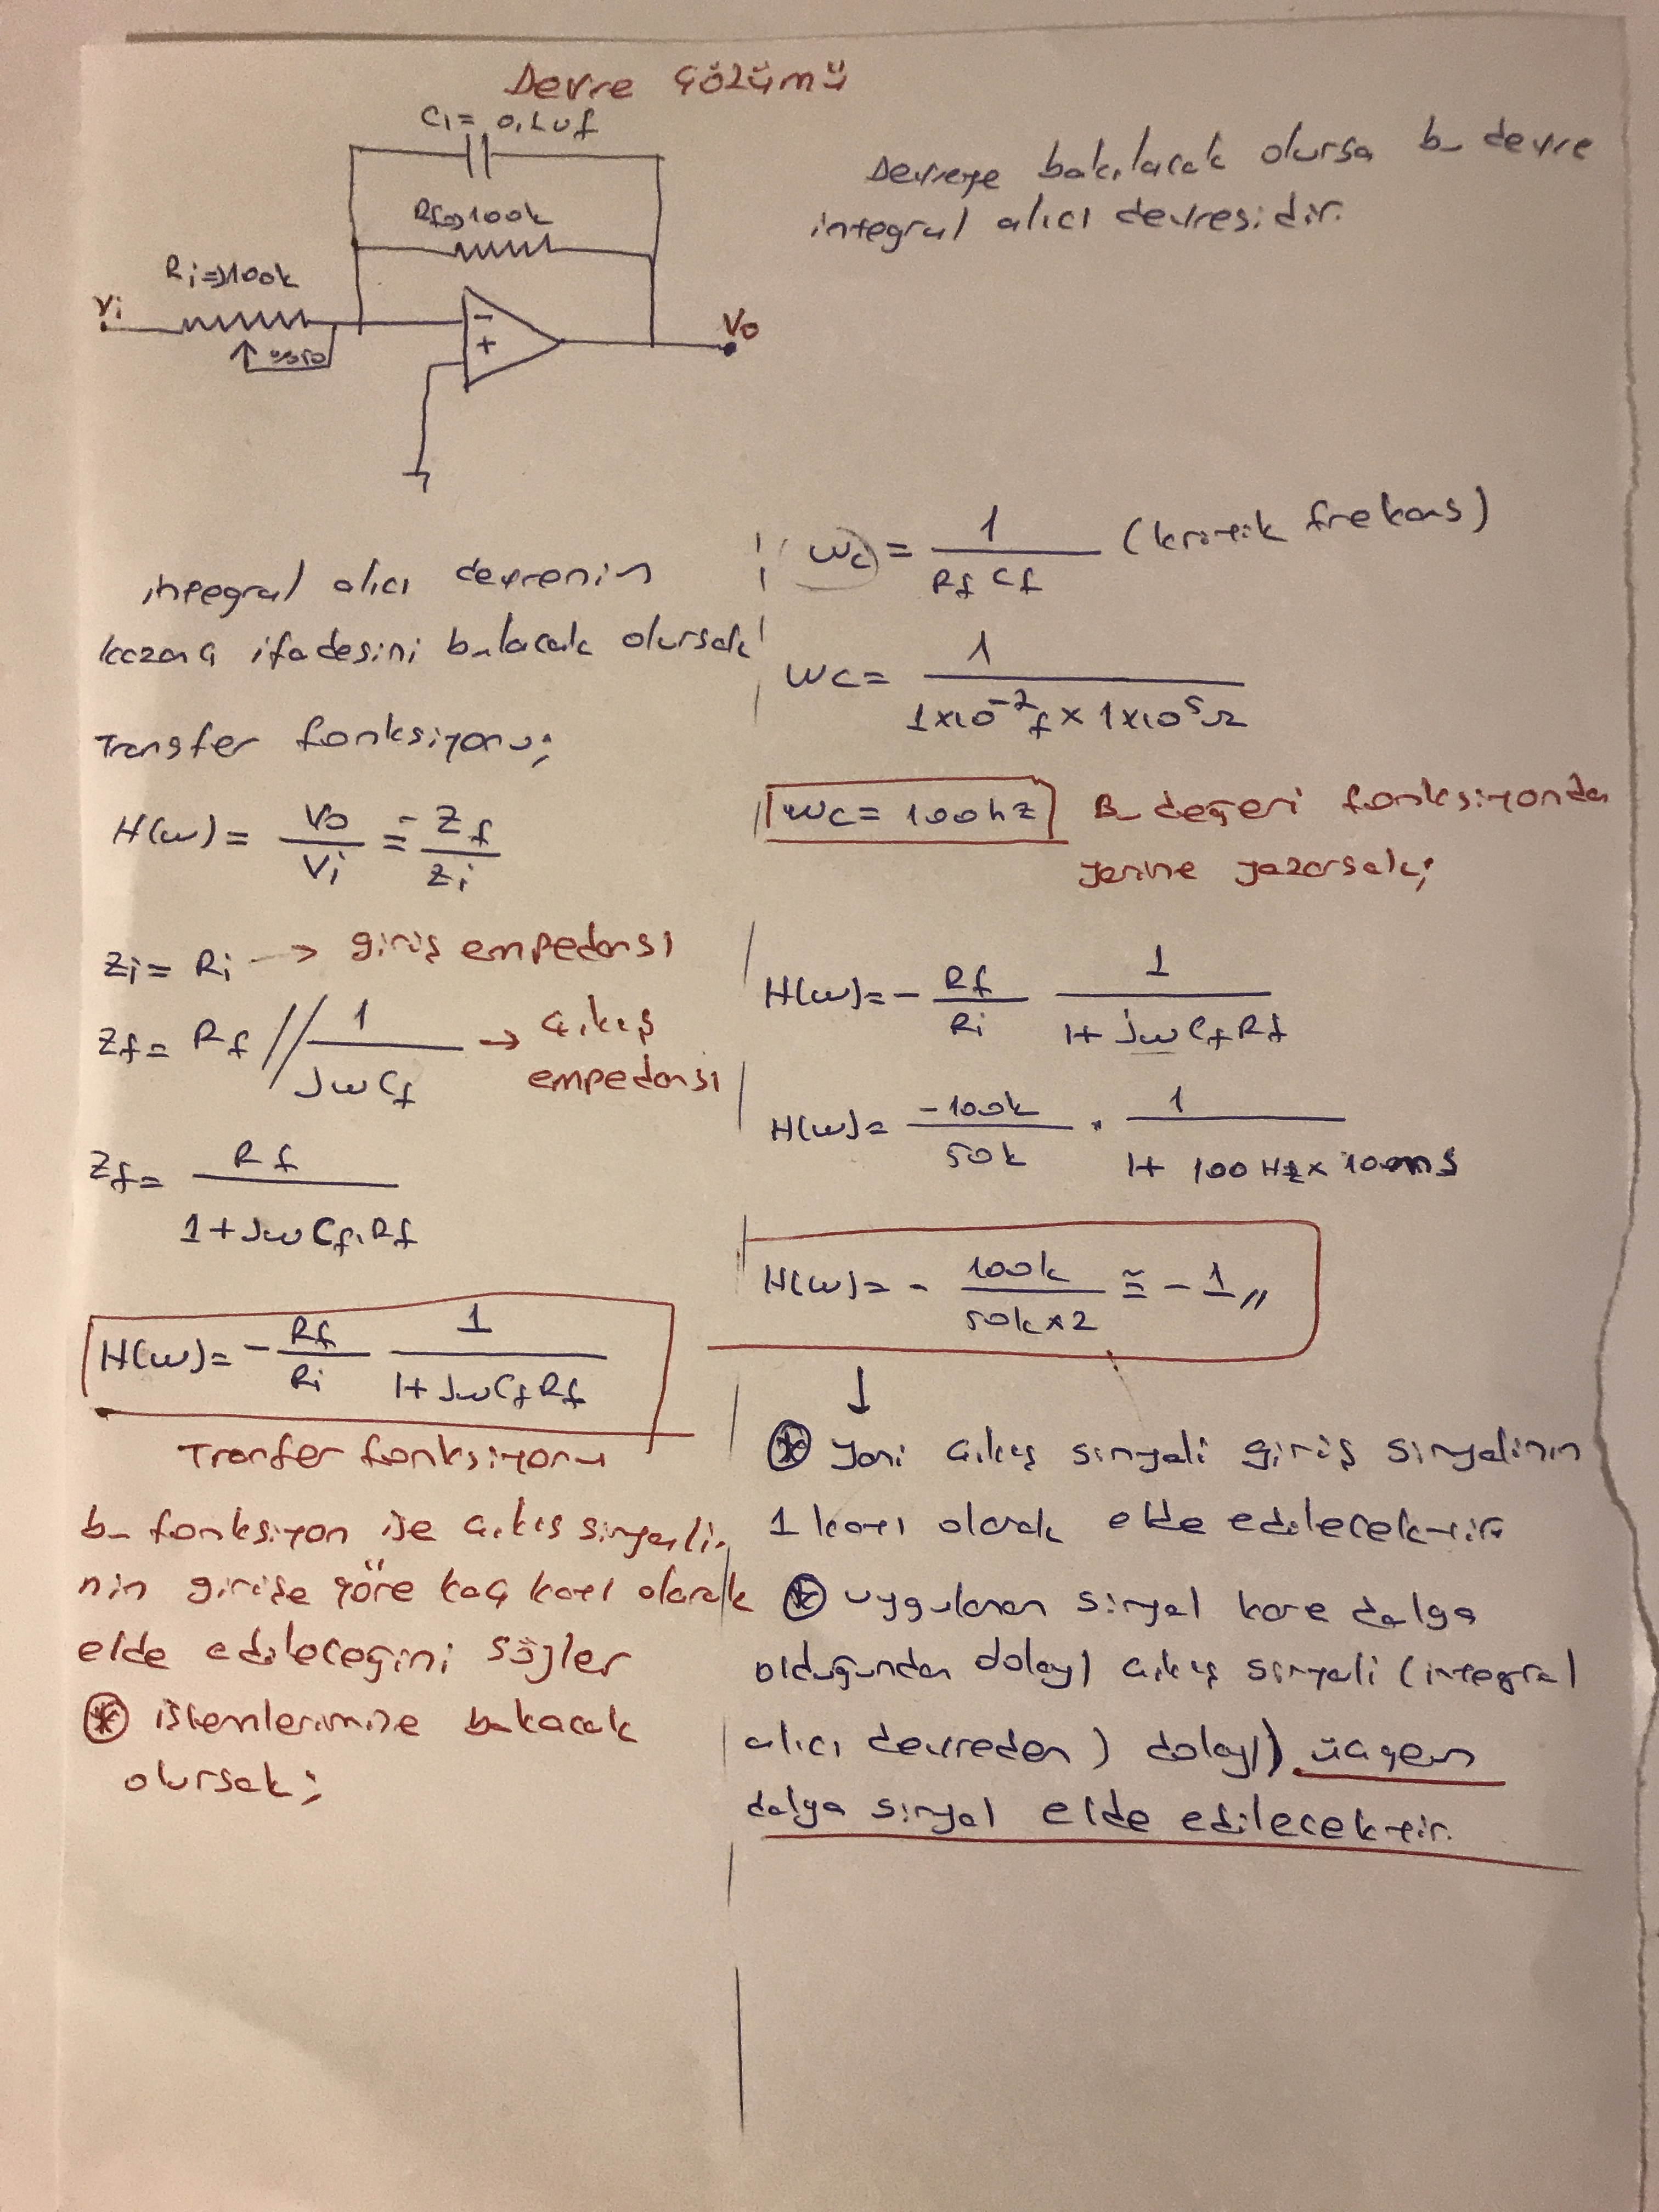 Devre Çözümü
C1= 0,1uf
Rf=>100k
Ri=>100k
Vi
%50
-
+
Vo
Devreye bakılacak olursa bu devre
integral alıcı devresidir.
integral alıcı devrenin
kazanç ifadesini bulacak olursak
Transfer fonksiyonu;
H(w)= Vo/Vi = -Zf/Zi
Zi= Ri → giriş empedansı
Zf= Rf // 1/jwCf → çıkış
empedansı
Zf= Rf/(1+jwCf.Rf)
H(w)= -Rf/Ri 1/(1+jwCfRf)
Tranfer fonksiyonu
bu fonksiyon ise çıkış sinyali-
nin girişe göre kaç katı olarak
elde edileceğini söyler
* işlemlerimize bakacak
olursak;
wc = 1/(Rf Cf) (kritik frekans)
wc= 1/(1x10⁻²f x 1x10⁵Ω)
wc= 100hz Bu değeri fonksiyonda
yerine yazarsak;
H(w)= - Rf/Ri 1/(1+jwCfRf)
H(w)= -100k/50k . 1/(1+ 100Hzx 10ms
H(w)= - 100k/(50kx2) ≅ -1,,
↓
* yani çıkış sinyali giriş sinyalinin
1 katı olarak elde edilecektir.
* uygulanan sinyal kare dalga
olduğundan dolayı çıkış sinyali (integral
alıcı devreden) dolayı) üçgen
dalga sinyal elde edilecektir.